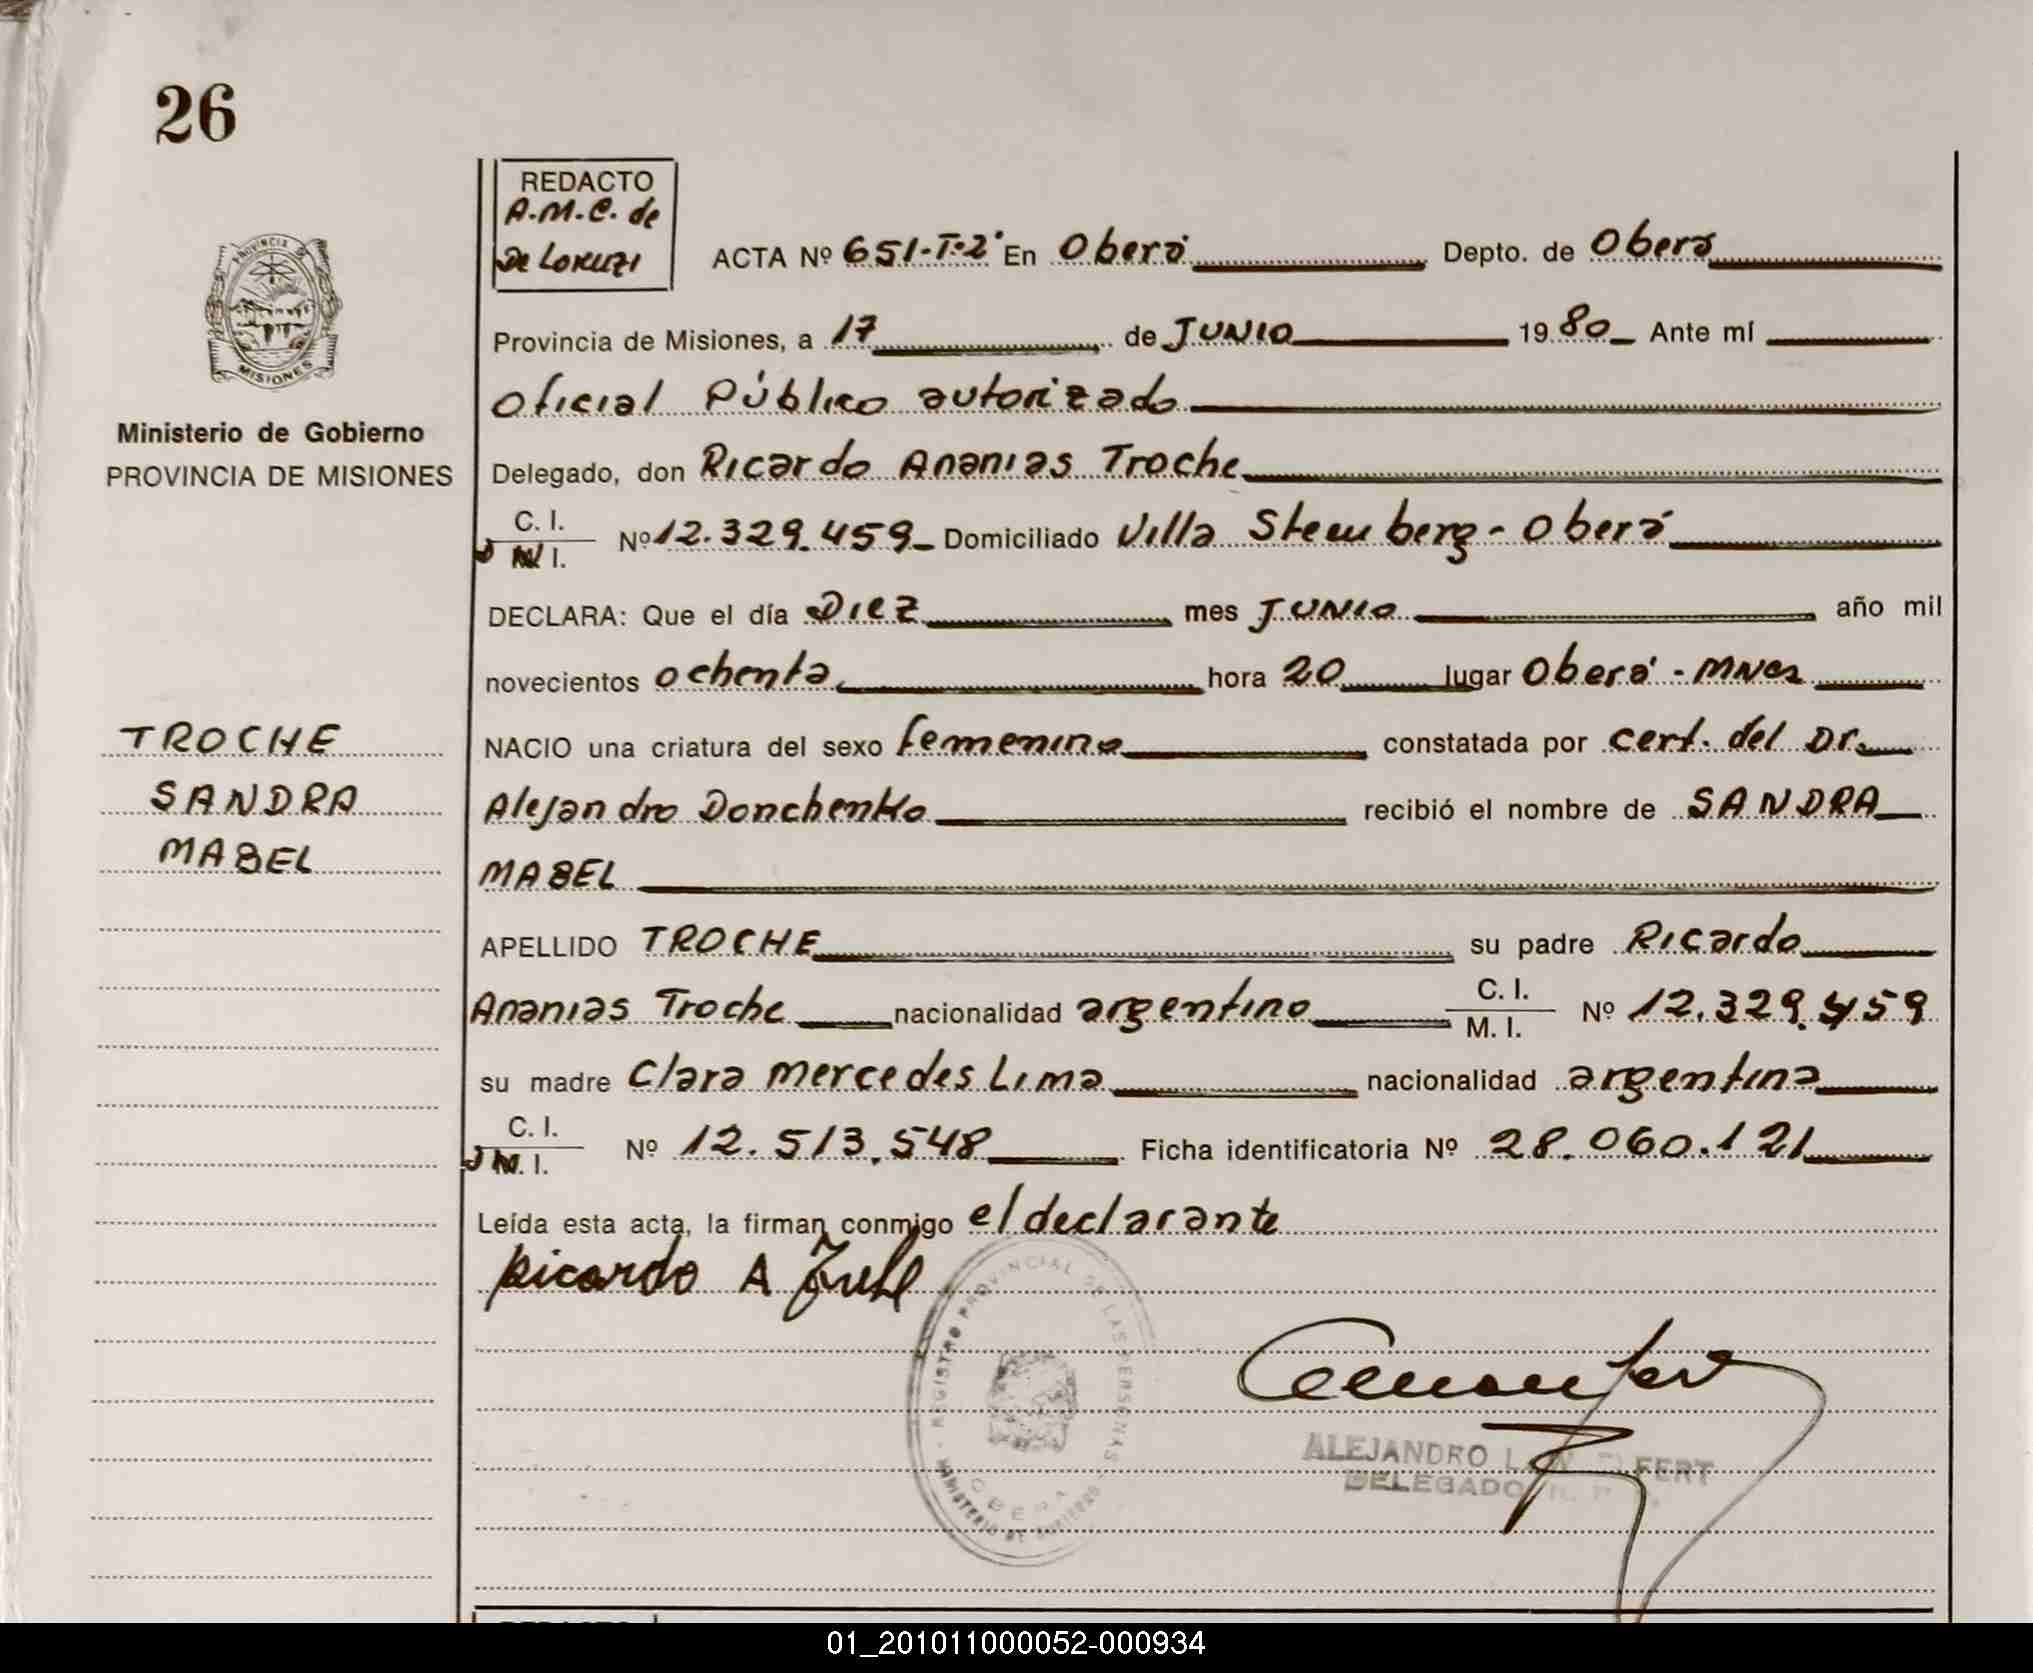 26
REDACTO
A.M.C. de
De Lorenzi
ACTA Nº 651-Tº2º En Oberá Depto. de Oberá
Provincia de Misiones, a 17 de JUNIO 1980 Ante mí
Oficial Público autorizado
Delegado, don Ricardo Ananias Troche
C. I.
M. I. Nº 12.329.459 Domiciliado Villa Stemberg - Oberá
DECLARA: Que el día Diez mes JUNIO año mil
novecientos ochenta hora 20 lugar Oberá - Mnes
NACIO una criatura del sexo femenino constatada por cert. del Dr.
Alejandro Donchenko recibió el nombre de SANDRA
MABEL
APELLIDO TROCHE su padre Ricardo
Ananias Troche nacionalidad argentino C. I.
M. I. Nº 12.329.459
su madre Clara Mercedes Lima nacionalidad argentina
C. I.
M. I. Nº 12.513.548 Ficha identificatoria Nº 28.060.121
Leída esta acta, la firman conmigo el declarante
Ricardo A
PROVINCIA DE
MISIONES
Ministerio de Gobierno
PROVINCIA DE MISIONES
TROCHE
SANDRA
MABEL
REGISTRO PROVINCIAL DE LAS PERSONAS
MINISTERIO DE GOBIERNO
OBERA
ALEJANDRO FERT
DELEGADO
01_201011000052-000934